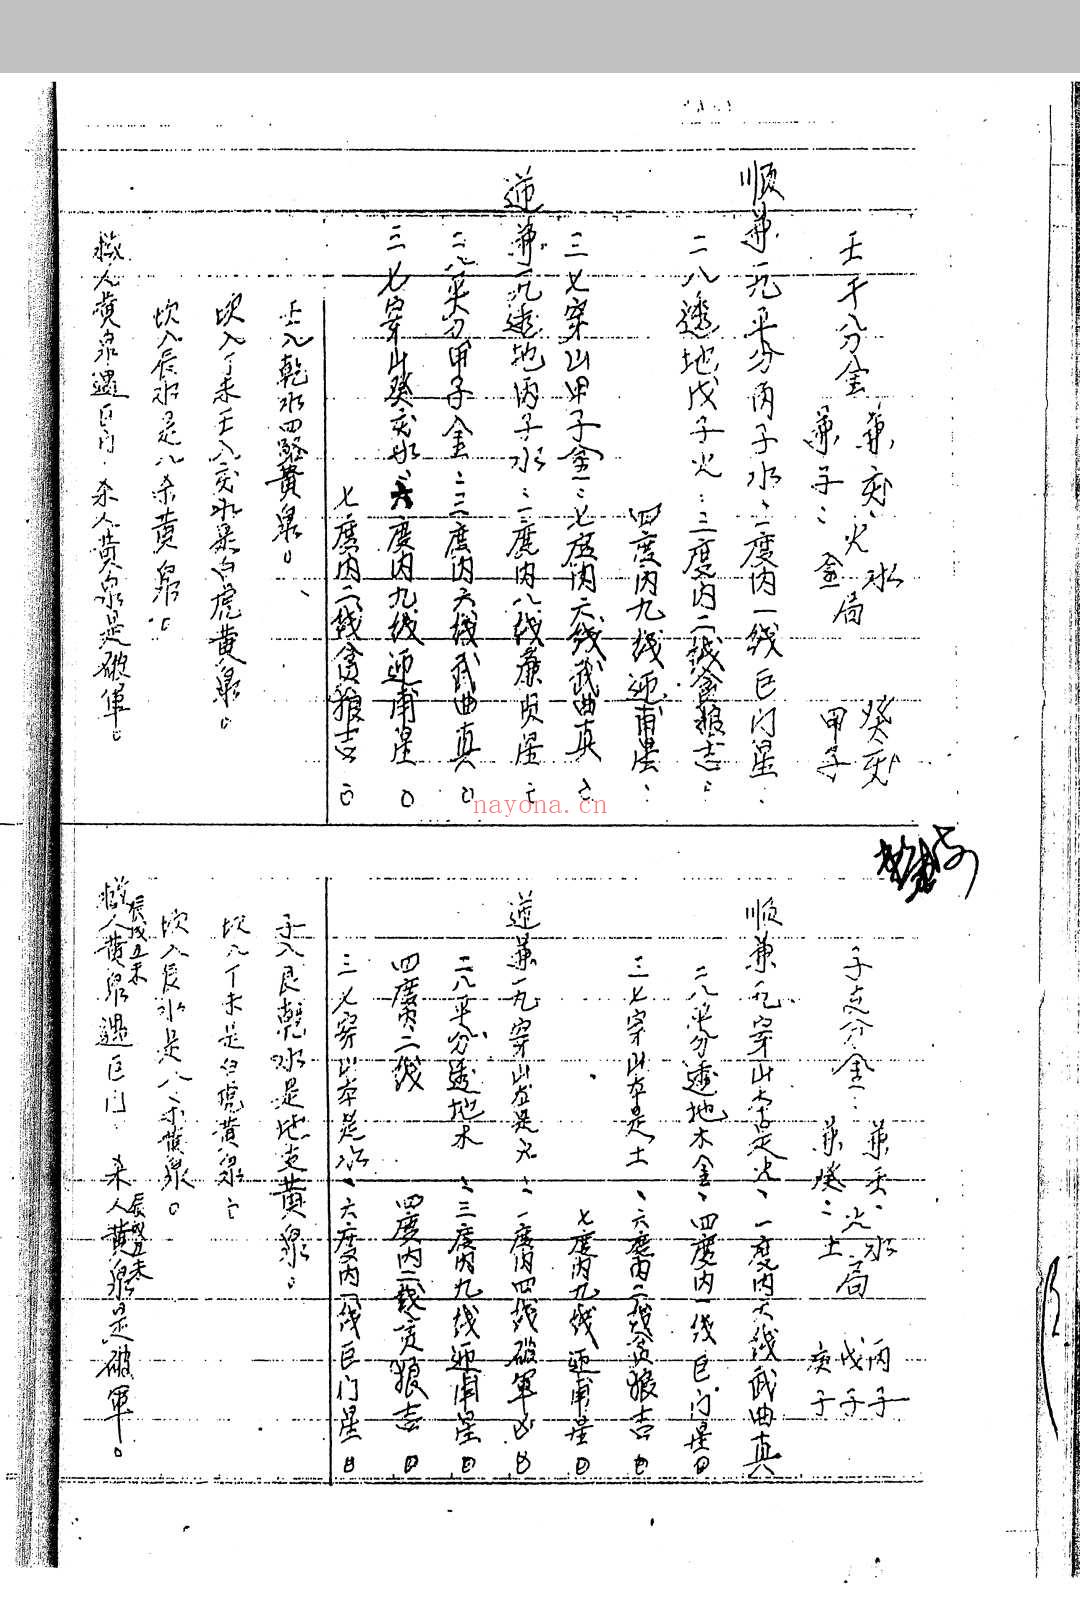 壬子分金
兼亥、火水
兼子：金局
癸亥
甲子
順兼一九平分丙子水、二度内一线巨门星
二八透地戊子火：三度内二线贪狼吉
四度内九线迎甫星
三七穿山甲子金：七度内六线武曲真
逆兼一九透地丙子水：二度内八线廉贞星
二八平分甲子金：三度内六线武曲真
三七穿山癸亥水：六度内九线迎甫星
七度内二线贪狼吉
壬入乾水四路黄泉
坎入丁未壬入亥水是白虎黄泉
坎入辰水是八杀黄泉
救人黄泉遇巨门 杀人黄泉是破軍
nayona.cn
子支分金：
兼壬、火水
兼癸：土局
丙子
戊子
庚子
順兼一九穿山本是火、一度内六线武曲真
二八平分透地木金：四度内一线巨门星
三七穿山本是土、六度内二线贪狼吉
七度内九线迎甫星
逆兼一九穿山本是火：一度内四线破軍凶
二八平分透地木：三度内九线迎甫星
四度内二线 四度内二线贪狼吉
三七穿山本是水、六度内一线巨门星
子入艮乾水是地支黄泉
坎入丁未是白虎黄泉
坎入辰水是八杀黄泉
救人黄泉遇巨门 杀人黄泉是破軍
辰戌丑未
辰戌丑未